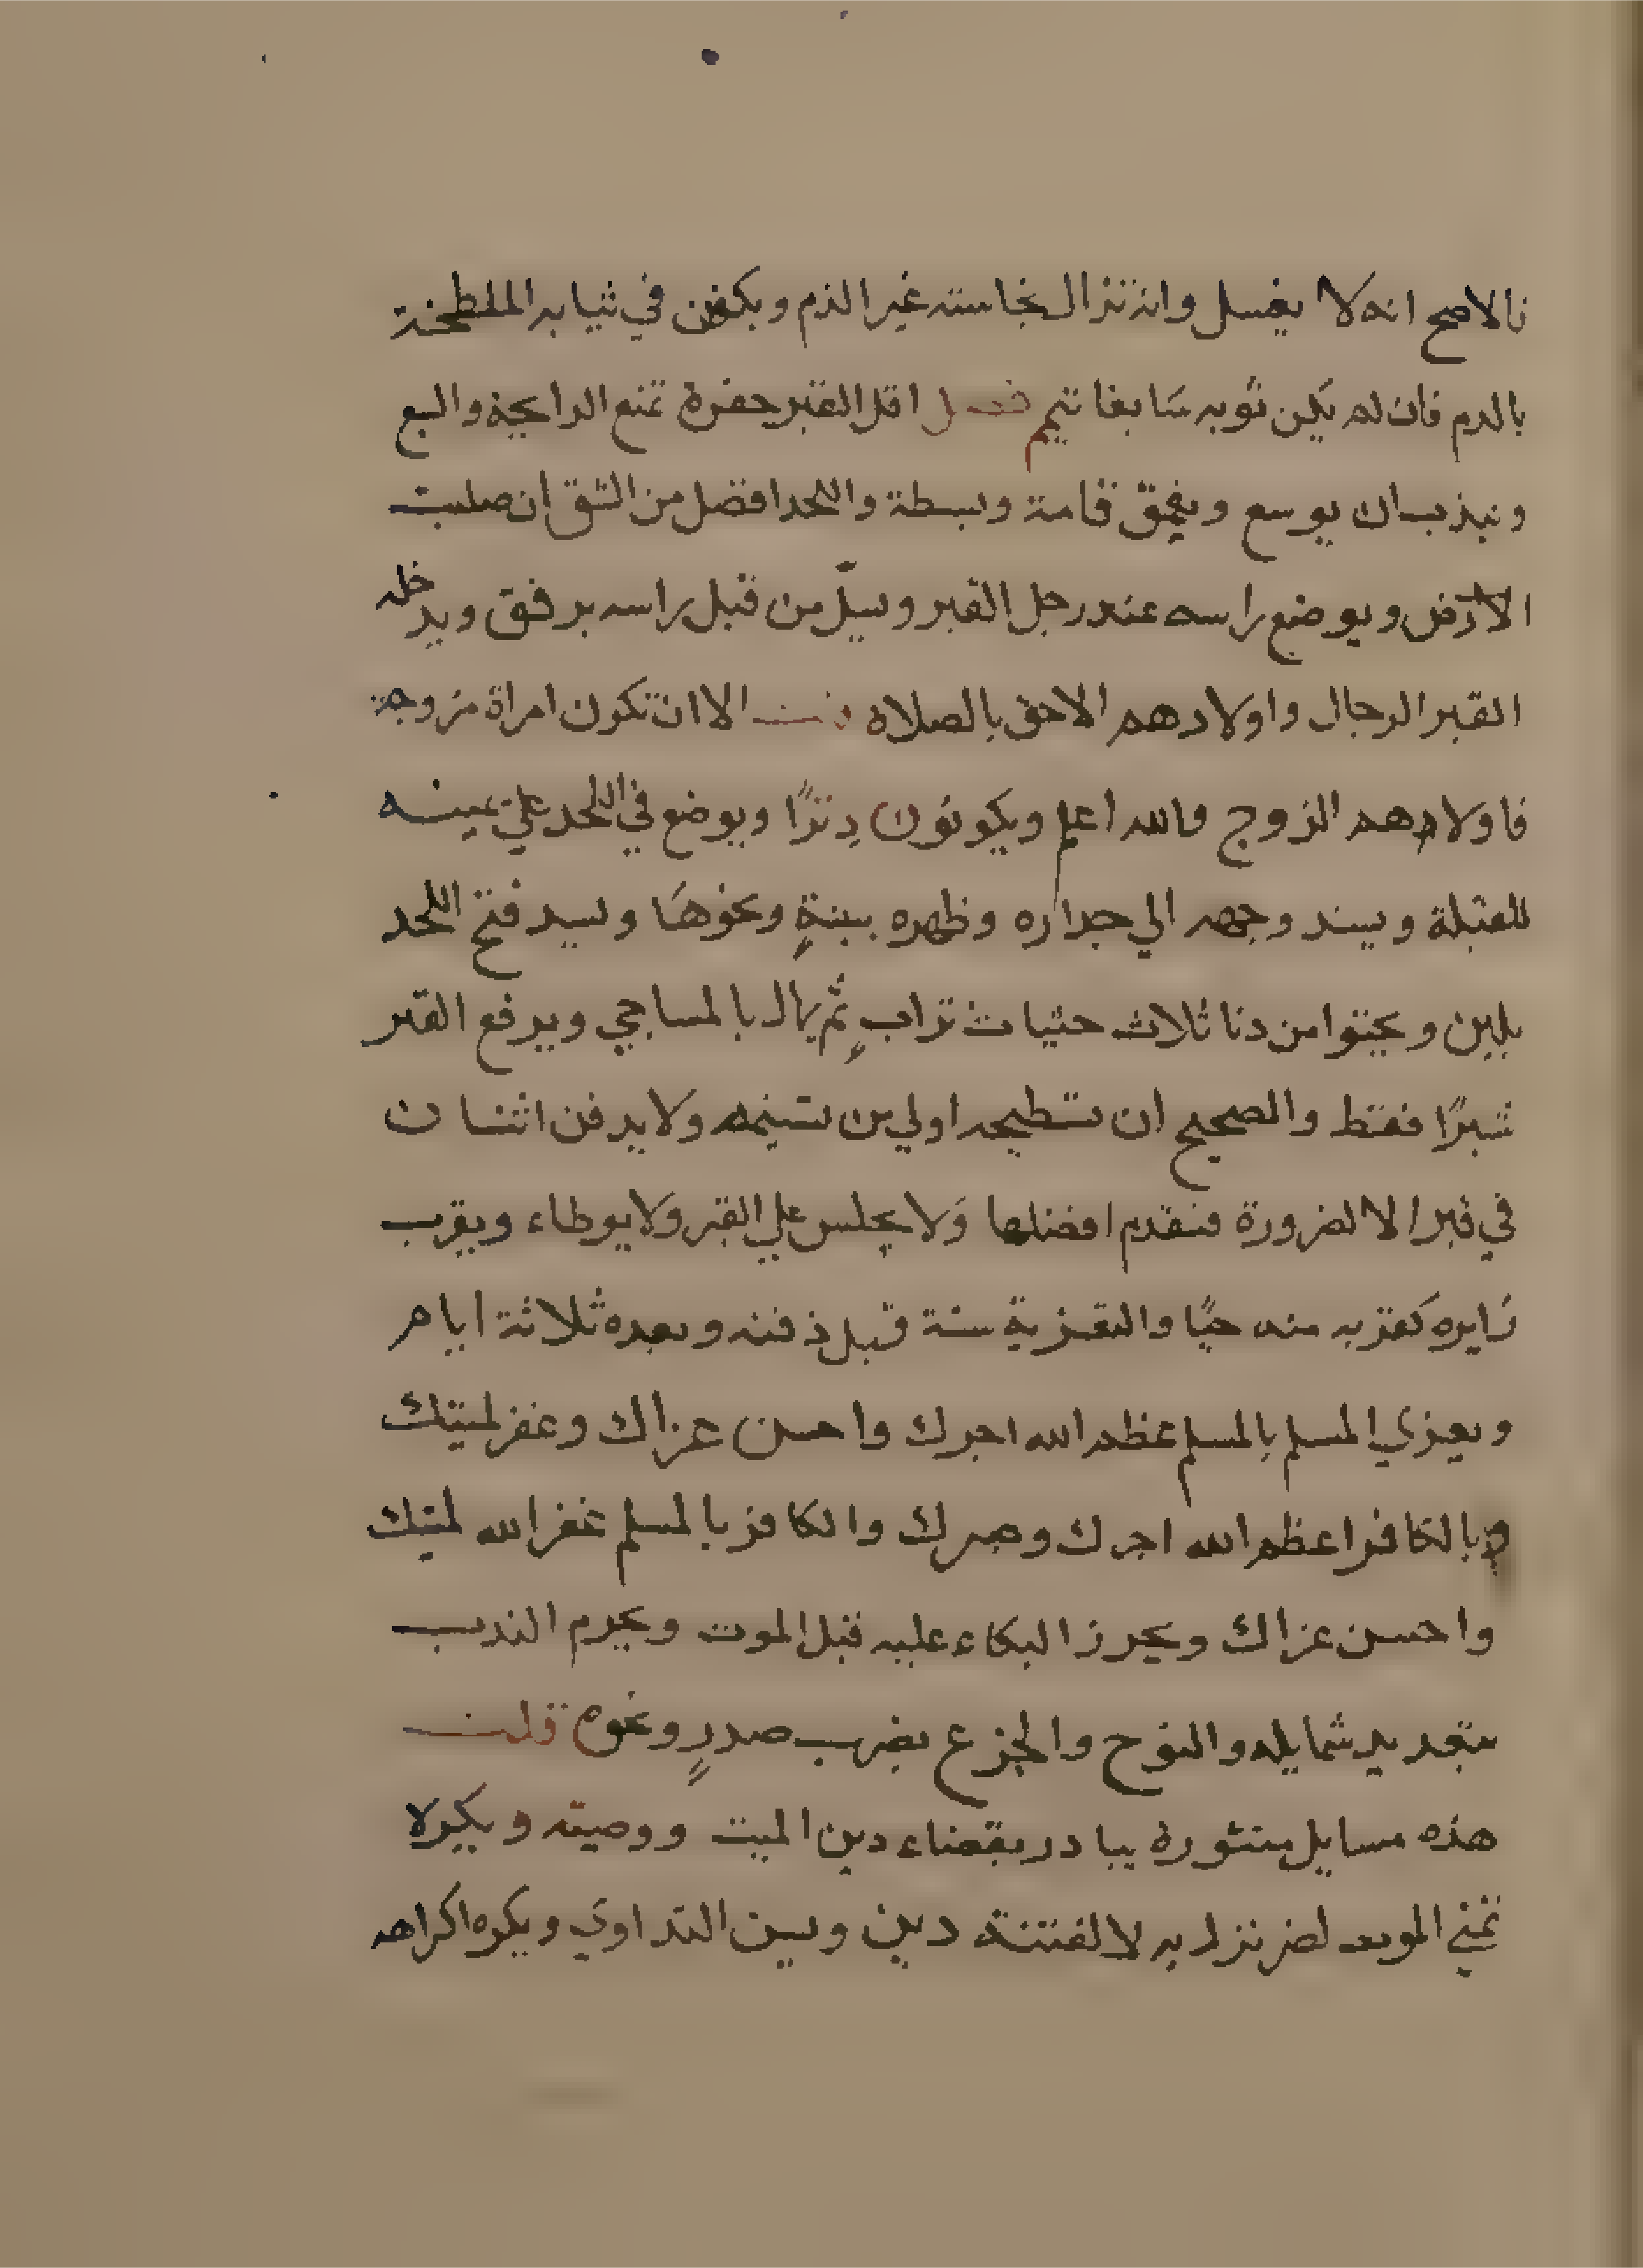 فالاصح انه لا يغسل وانه تزال نجاسته غير الدم ويكفن في ثيابه الملطخة
بالدم فان لم يكن ثوبه سابغا تمم فصل اقل القبر حفرة تمنع الرايحة والسبع
ويندب ان يوسع ويعمق قامة وبسطة واللحد افضل من الشق ان صلبت
الارض ويوضع راسه عند رجل القبر ويسل من قبل راسه برفق ويدخله
القبر الرجال واولادهم الاحق بالصلاة قلت الا ان تكون امراة مزوجة
فاولادهم الزوج والله اعلم ويكونون وترًا ويوضع في اللحد علي يمينه
للقبلة ويسند وجهه الي جداره وظهره بلبنةٍ ونحوهَا ويسد فتح اللحد
بلبن ويحثوا من دنا ثلاث حثيات ترابٍ ثم يهال بالمساحي ويرفع القبر
شبرًا فقط والصحيح ان تسطيحه اولي من تسنيمه ولا يدفن اثنان
في قبر الا لضرورة فيقدم افضلهما وَلا يجلس علي القبر ولا يوطاء ويقرب
زَايره كقربه منه حيًا والتعزية سنة قبل دفنه وبعده ثلاثة ايام
ويعزي المسلم بالمسلم عظم الله اجرك واحسن عزاك وغفر لميتك
وبالكافر اعظم الله اجرك وصبرك والكافر بالمسلم غفر الله لميتك
واحسن عزاك ويجوز البكاء عليه قبل الموت ويحرم الندب
بتعديد شمايله والنوح والجزع بضرب صدرٍ ونحوه قلت
هذه مسايل منثورة يبادر بقضاء دين الميت ووصيته ويكره
تمني الموت لضر نزل به لا لفتنة دين ويسن التداوي ويكره اكراهه